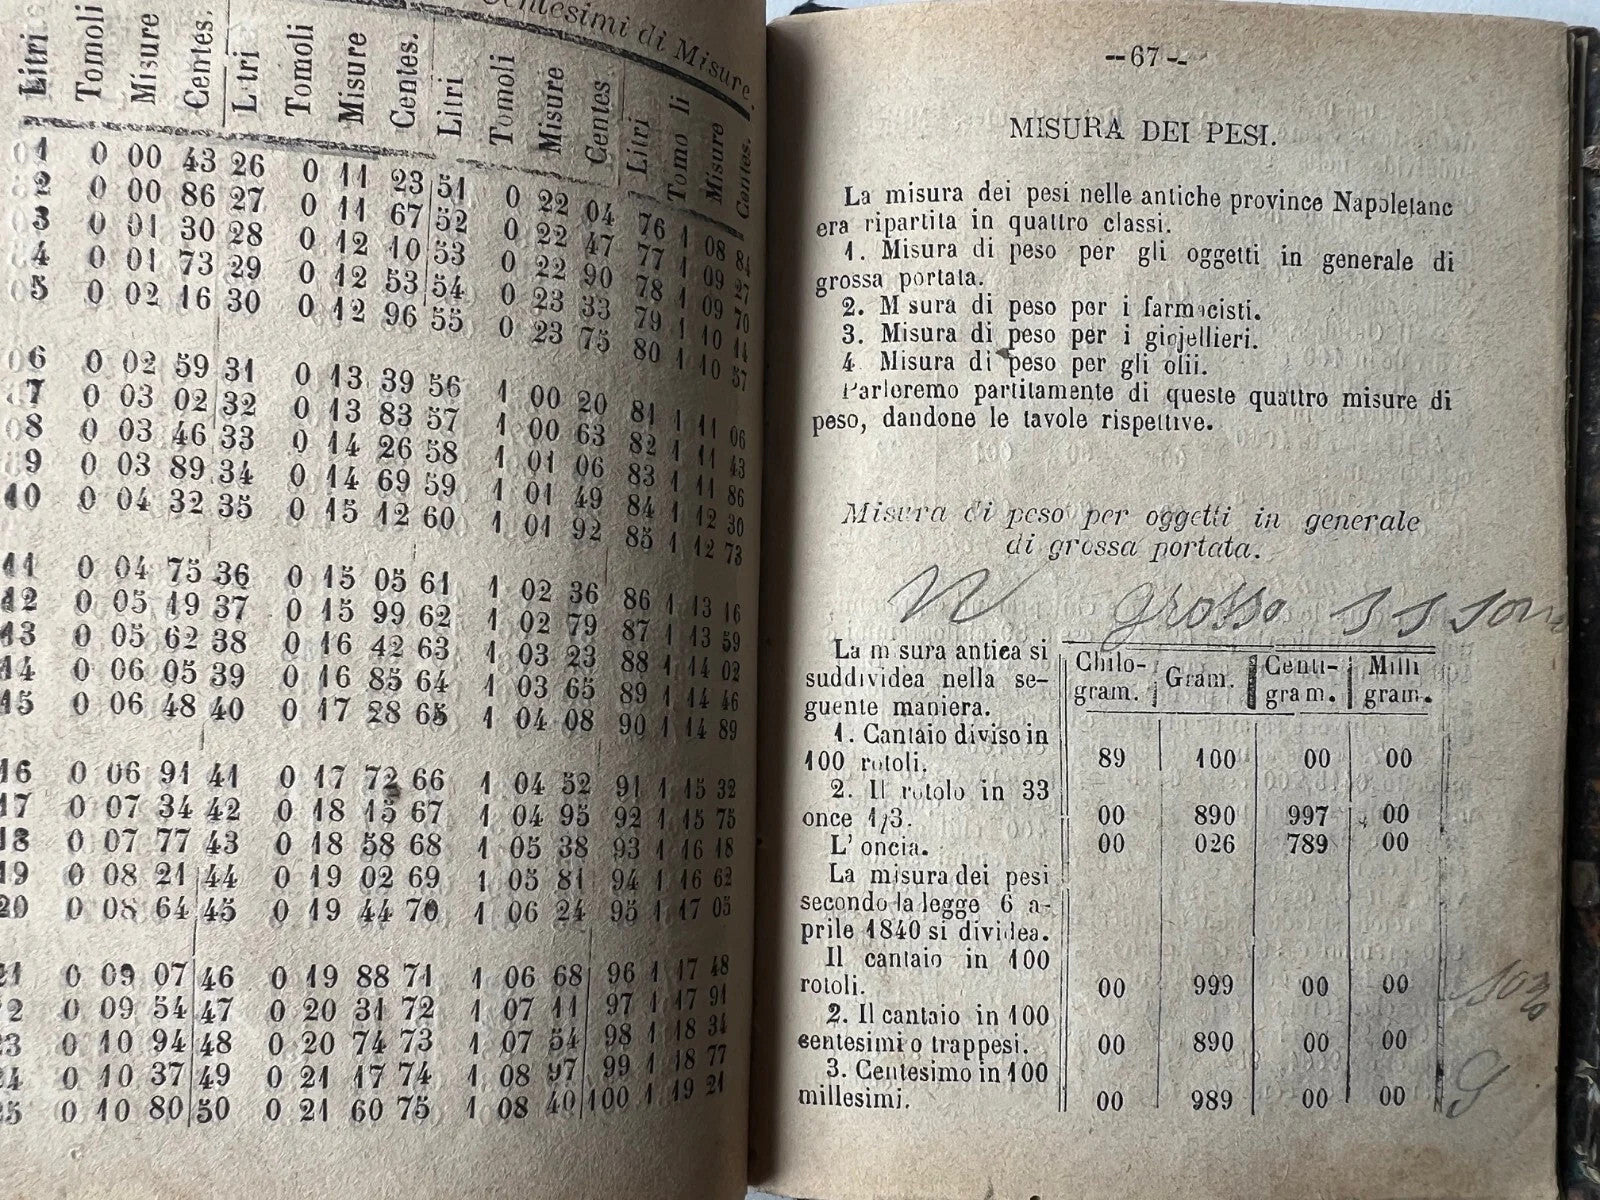 Centesimi di Misure.
Litri Tomoli Misure Centes. L tri Tomoli Misure Centes. Litri Tomoli Misure Centes Litri Tomo li Misure Centes.
1 0 00 43 26 0 11 23 51 0 22 04 76 1 08 84
2 0 00 86 27 0 11 67 52 0 22 47 77 1 09 27
3 0 01 30 28 0 12 10 53 0 22 90 78 1 09 70
4 0 01 73 29 0 12 53 54 0 23 33 79 1 10 14
5 0 02 16 30 0 12 96 55 0 23 75 80 1 10 57
6 0 02 59 31 0 13 39 56 1 00 20 81 1 11 06
7 0 03 02 32 0 13 83 57 1 00 63 82 1 11 43
8 0 03 46 33 0 14 26 58 1 01 06 83 1 11 86
9 0 03 89 34 0 14 69 59 1 01 49 84 1 12 30
10 0 04 32 35 0 15 12 60 1 01 92 85 1 12 73
11 0 04 75 36 0 15 05 61 1 02 36 86 1 13 16
12 0 05 19 37 0 15 99 62 1 02 79 87 1 13 59
13 0 05 62 38 0 16 42 63 1 03 23 88 1 14 02
14 0 06 05 39 0 16 85 64 1 03 65 89 1 14 46
15 0 06 48 40 0 17 28 65 1 04 08 90 1 14 89
16 0 06 91 41 0 17 72 66 1 04 52 91 1 15 32
17 0 07 34 42 0 18 15 67 1 04 95 92 1 15 75
18 0 07 77 43 0 18 58 68 1 05 38 93 1 16 18
19 0 08 21 44 0 19 02 69 1 05 81 94 1 16 62
20 0 08 64 45 0 19 44 70 1 06 24 95 1 17 05
21 0 09 07 46 0 19 88 71 1 06 68 96 1 17 48
2 0 09 54 47 0 20 31 72 1 07 11 97 1 17 91
23 0 10 94 48 0 20 74 73 1 07 54 98 1 18 34
24 0 10 37 49 0 21 17 74 1 08 97 99 1 18 77
25 0 10 80 50 0 21 60 75 1 08 40 100 1 19 21
--67--
MISURA DEI PESI.
La misura dei pesi nelle antiche province Napoletane
era ripartita in quattro classi.
1. Misura di peso per gli oggetti in generale di
grossa portata.
2. M sura di peso per i farmacisti.
3. Misura di peso per i giojellieri.
4 Misura di peso per gli olii.
Parleremo partitamente di queste quattro misure di
peso, dandone le tavole rispettive.
Misura di peso per oggetti in generale
di grossa portata.
grosso
La m sura antica si
suddividea nella se-
guente maniera.
Chilo-gram. Gram. Centi-gram. Milli gram.
1. Cantaio diviso in
100 rotoli. 89 100 00 00
2. Il rotolo in 33
once 1/3. 00 890 997 00
L' oncia. 00 026 789 00
La misura dei pesi
secondo la legge 6 a-
prile 1840 si dividea.
Il cantaio in 100
rotoli. 00 999 00 00
2. Il cantaio in 100
centesimi o trappesi. 00 890 00 00
3. Centesimo in 100
millesimi. 00 989 00 00